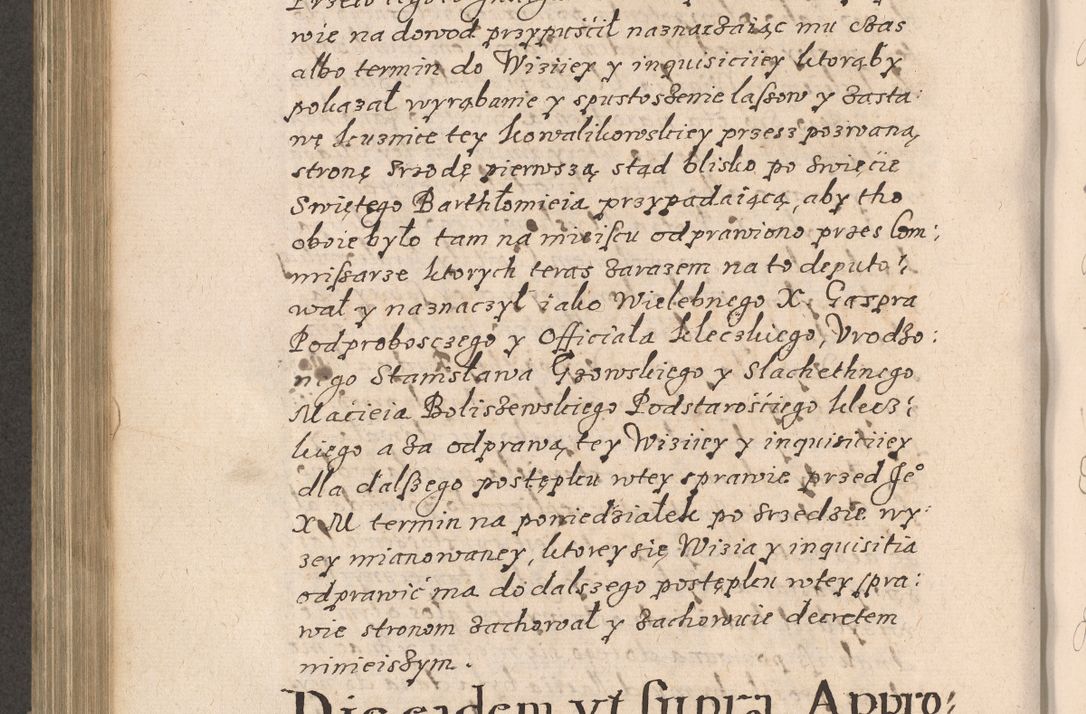 wie na dowod przypuścił naznaczaiąc mu czas
albo termin do Wiziiey y inquisiciiey ktorąby
pokazał wyrąbanie y spustoszenie lassow y zasta:
wę kuznice tey Kowalikowskiey przesz pozwaną
stronę srzodę pierwszą stąd blisko po swięcie
Swiętego Barthłomieia przypadaiącą, aby tho
oboie było tam na mieiscu odprawiono przes Com:
missarze ktorych teras zarazem na to deputo:
wał y naznaczył iako Wielebnego X. Gaspra
Podproboszczego y Officiała kleczkiego, Vrodzo:
nego Stanisława Gzowskiego y Slachethnego
Macieia Boliszewskiego Podstarościego klecz:
kiego a za odprawą tey Wiziiey y inquisiciiey
dla dalszego postępku wtey sprawie przed Je⁰
X M termin na poniedziałek po srzedzie wy:
zey mianowaney, ktorey się Wizia y inquisitia
odprawić ma do dalszego postępku wtey spra:
wie stronom zachował y zachowuie decretem
ninieiszym.
Die eadem vt supra Appro: